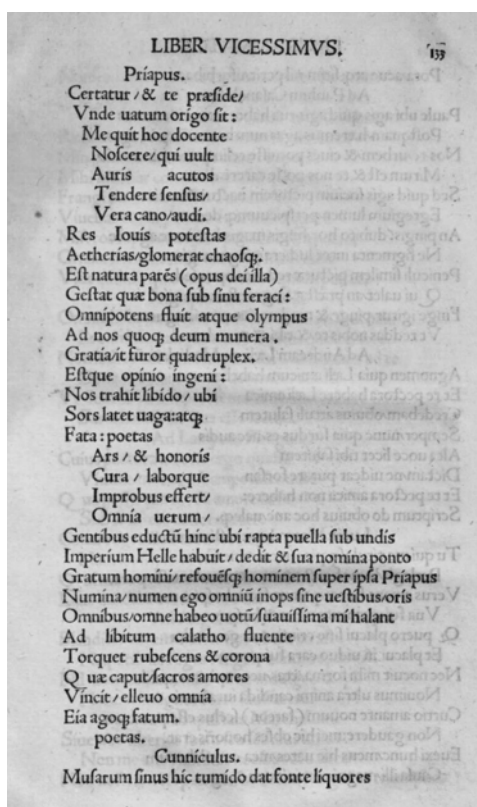 LIBER VICESSIMVS. 133
Príapus.
Certatur/& te præſide/
Vnde uatum origo ſit:
Me quit hoc docente
Noſcere/quí uult
Auris acutos
Tendere ſenſus/
Vera cano/audi.
Res Iouís poteſtas
Aetherías/glomerat chaoſqꝫ.
Eſt natura parẽs (opus deí illa)
Geſtat quæ bona ſub ſinu ferací:
Omnípotens fluít atque olympus
Ad nos quoqꝫ deum munera.
Gratia/it furor quadruplex.
Eſtque opínío ingení:
Nos trahít libído/ubí
Sors latet uaga:atqꝫ
Fata:poetas
Ars/& honorís
Cura/laborque
Improbus effert/
Omnía uerum/
Gentibus eductũ hinc ubí rapta puella ſub undís
Imperíum Helle habuít/dedít & ſua nomína ponto
Gratum homíní/refouẽſqꝫ homínem ſuper ípſa Príapus
Numína/numen ego omníũ ínops ſine ueſtibus/orís
Omníbus/omne habeo uotũ/ſuauíſſima mí halant
Ad líbítum calatho fluente
Torquet rubeſcens & corona
Quæ caput/ſacros amores
Víncít/elleuo omnía
Eía agoqꝫ fatum.
poetas.
Cunnículus.
Muſarum ſinus híc tumído dat fonte líquores